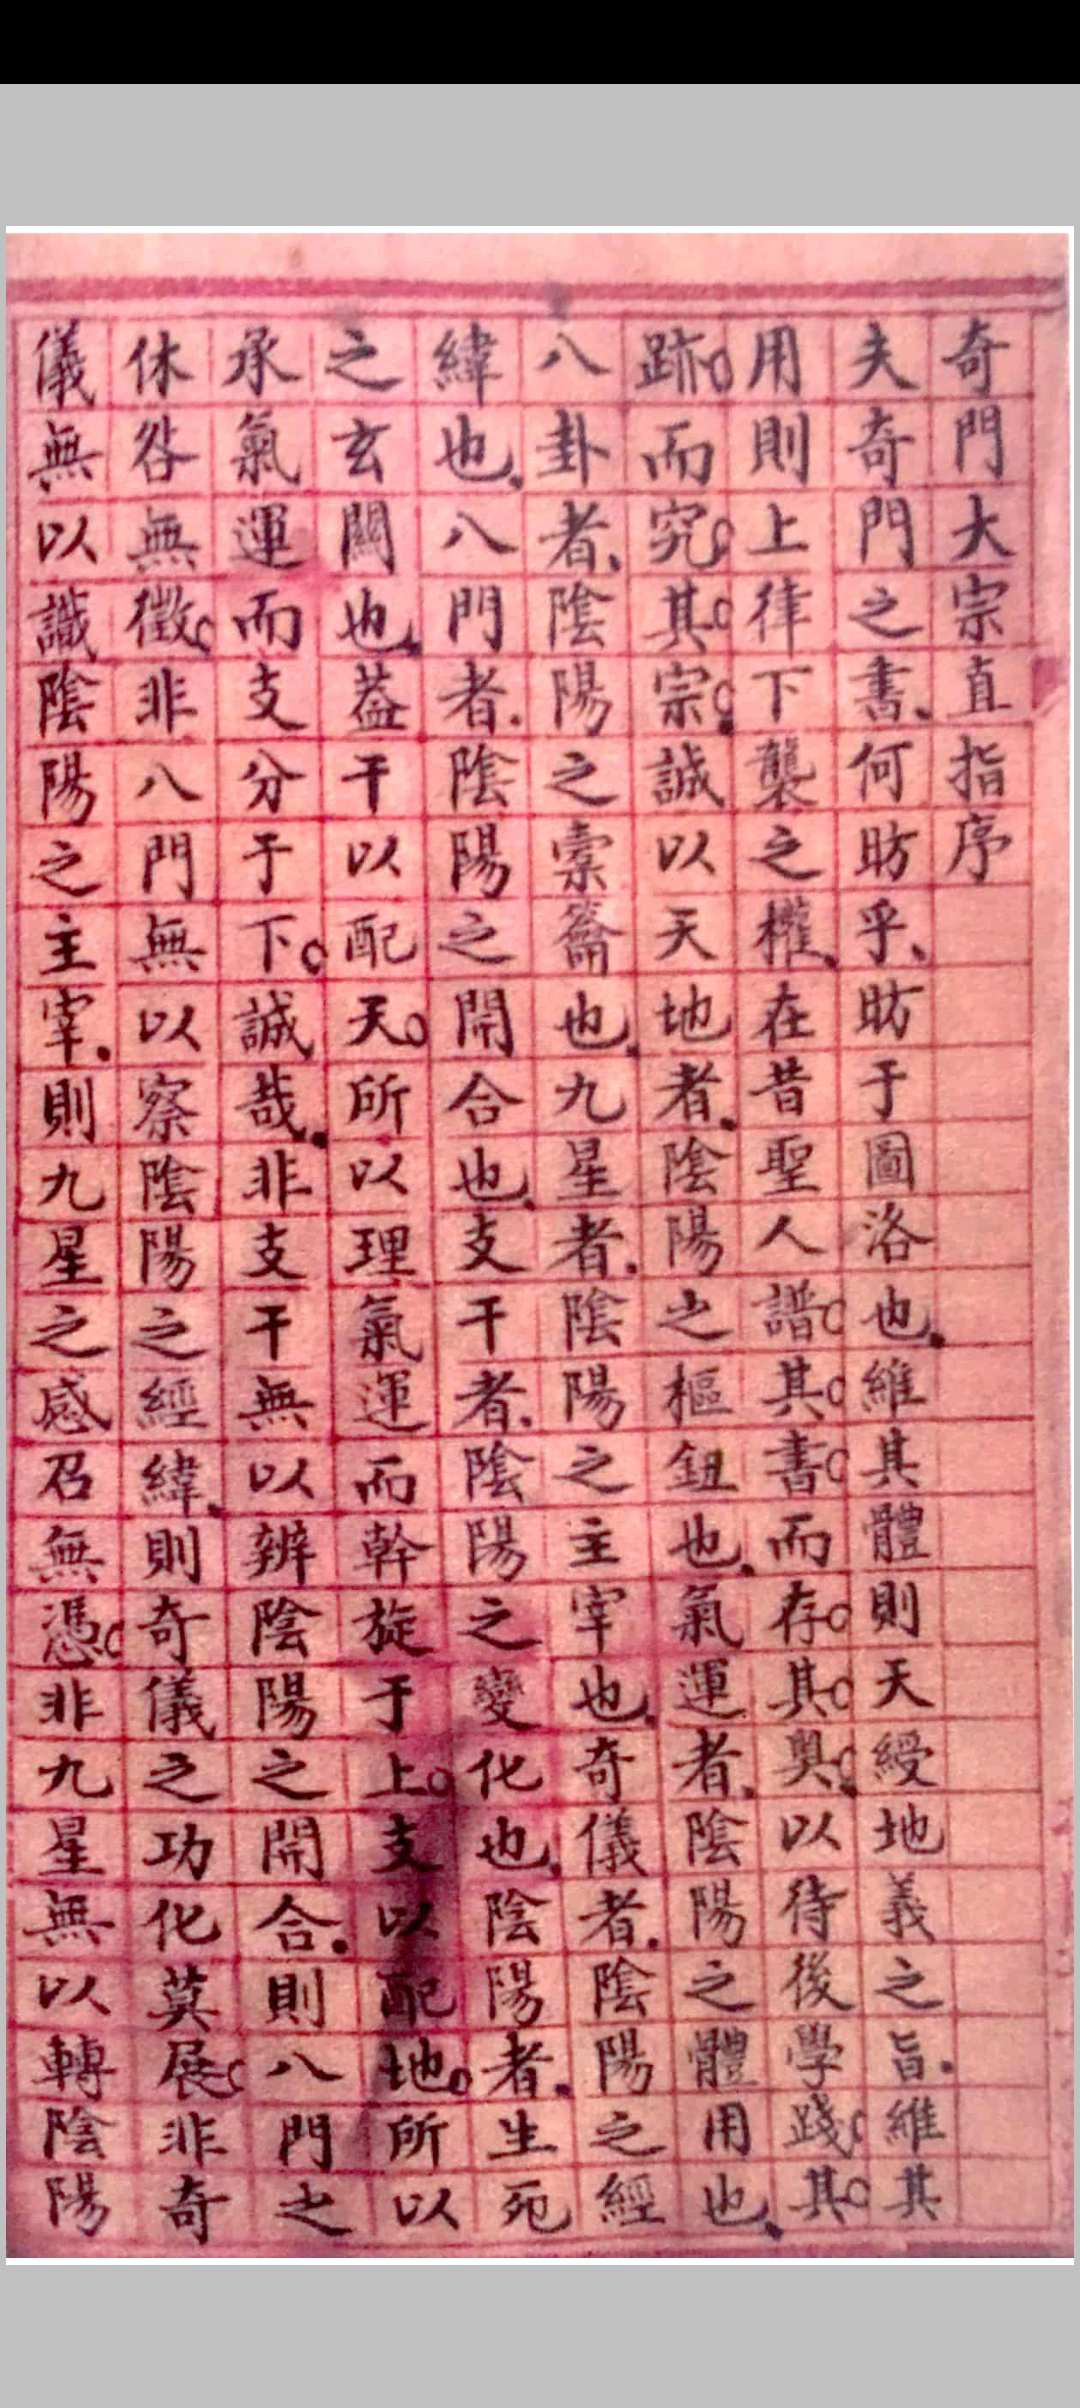 奇門大宗直指序
夫奇門之書.何昉乎、昉于圖洛也.維其體則天綬地義之旨.維其
用則上律下襲之權、在昔聖人譜其書而存其奧.以待後學踐其
跡而究其宗.誠以天地者.陰陽之樞鈕也.氣運者.陰陽之體用也、
八卦者、陰陽之橐籥也.九星者.陰陽之主宰也.奇儀者.陰陽之經
緯也.八門者.陰陽之開合也.支干者.陰陽之變化也.陰陽者.生死
之玄關也.葢干以配天。所以理氣運而幹旋于上。支以配地。所以
承氣運而支分于下。誠哉.非支干無以辨陰陽之開合.則八門之
休咎無徵。非八門無以察陰陽之經緯.則奇儀之功化莫展。非奇
儀無以識陰陽之主宰.則九星之感召無憑。非九星無以轉陰陽